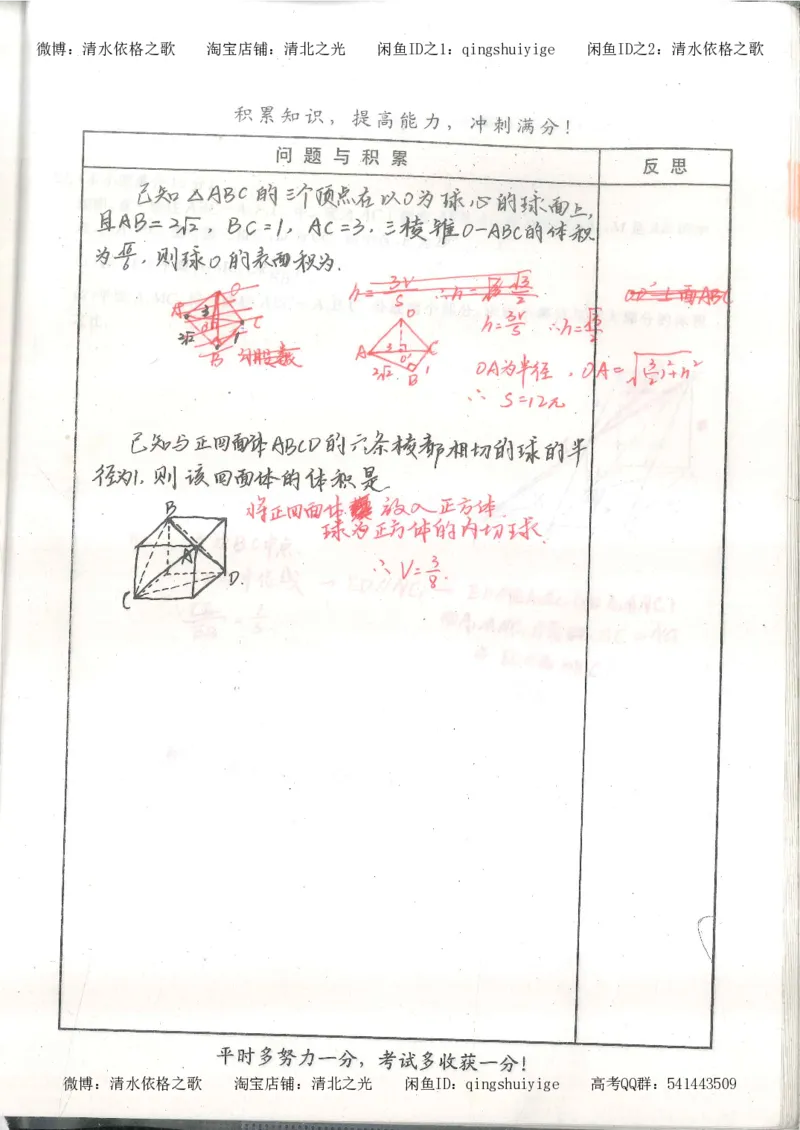 微博：清水依格之歌 淘宝店铺：清北之光 闲鱼ID之1：qingshuiyige 闲鱼ID之2：清水依格之歌
积累知识，提高能力，冲刺满分！
问题与积累 反思
已知△ABC的三个顶点在以O为球心的球面上,
且AB=2√2, BC=1, AC=3. 三棱锥O-ABC的体积
为, 则球O的表面积为.
h=3V/S ∴h=
OO'⊥面ABC
O
A 3 C
2√2 B 1
O
A 3 O' C
2√2 B 1
h=3V/S ∴h=
OA为半径, OA=√(3/2)²+h²
∴ S=12π
已知与正四面体ABCD的六条棱都相切的球的半
径为1, 则该四面体的体积是
将正四面体放入正方体.
球为正方体的内切球.
∴ V=3/8.
B
A
D.
C
平时多努力一分，考试多收获一分！
微博：清水依格之歌 淘宝店铺：清北之光 闲鱼ID：qingshuiyige 高考QQ群：541443509